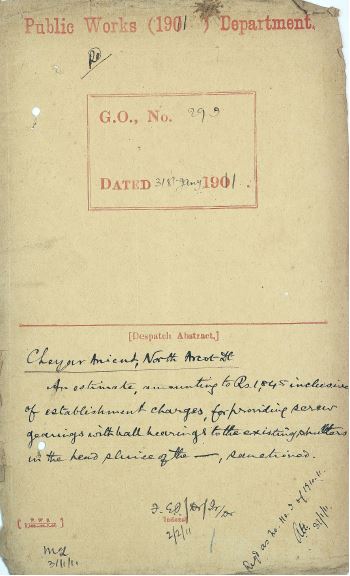 Public Works (1901) Department.
G.O., No. 299
DATED 31st Jany 1901.
[Despatch Abstract.]
Cheyar Anicut, North Arcot Dt
An estimate, amounting to Rs 1,845 inclusive
of establishment charges, for providing screw
gearings with ball bearings to the existing shutters
in the head sluice of the —, sanctioned.
Indexed
2/2/11
31/1/11